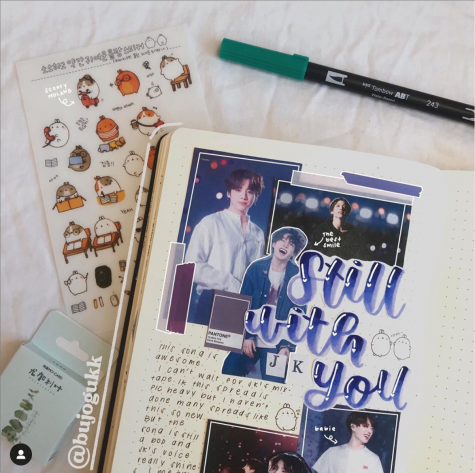 SPOOKY
MOLANG
Tombow ABT
243
THE
best
smile
still
with
you
PANTONE®
J K
this song is
awesome
I can't wait for JK's mix-
tape. Ik this spread is
pic heavy but I haven't
done many spreads like
this so new
But the
song is still
a bop and
JK's voice
really shine
babie
@bujogukk